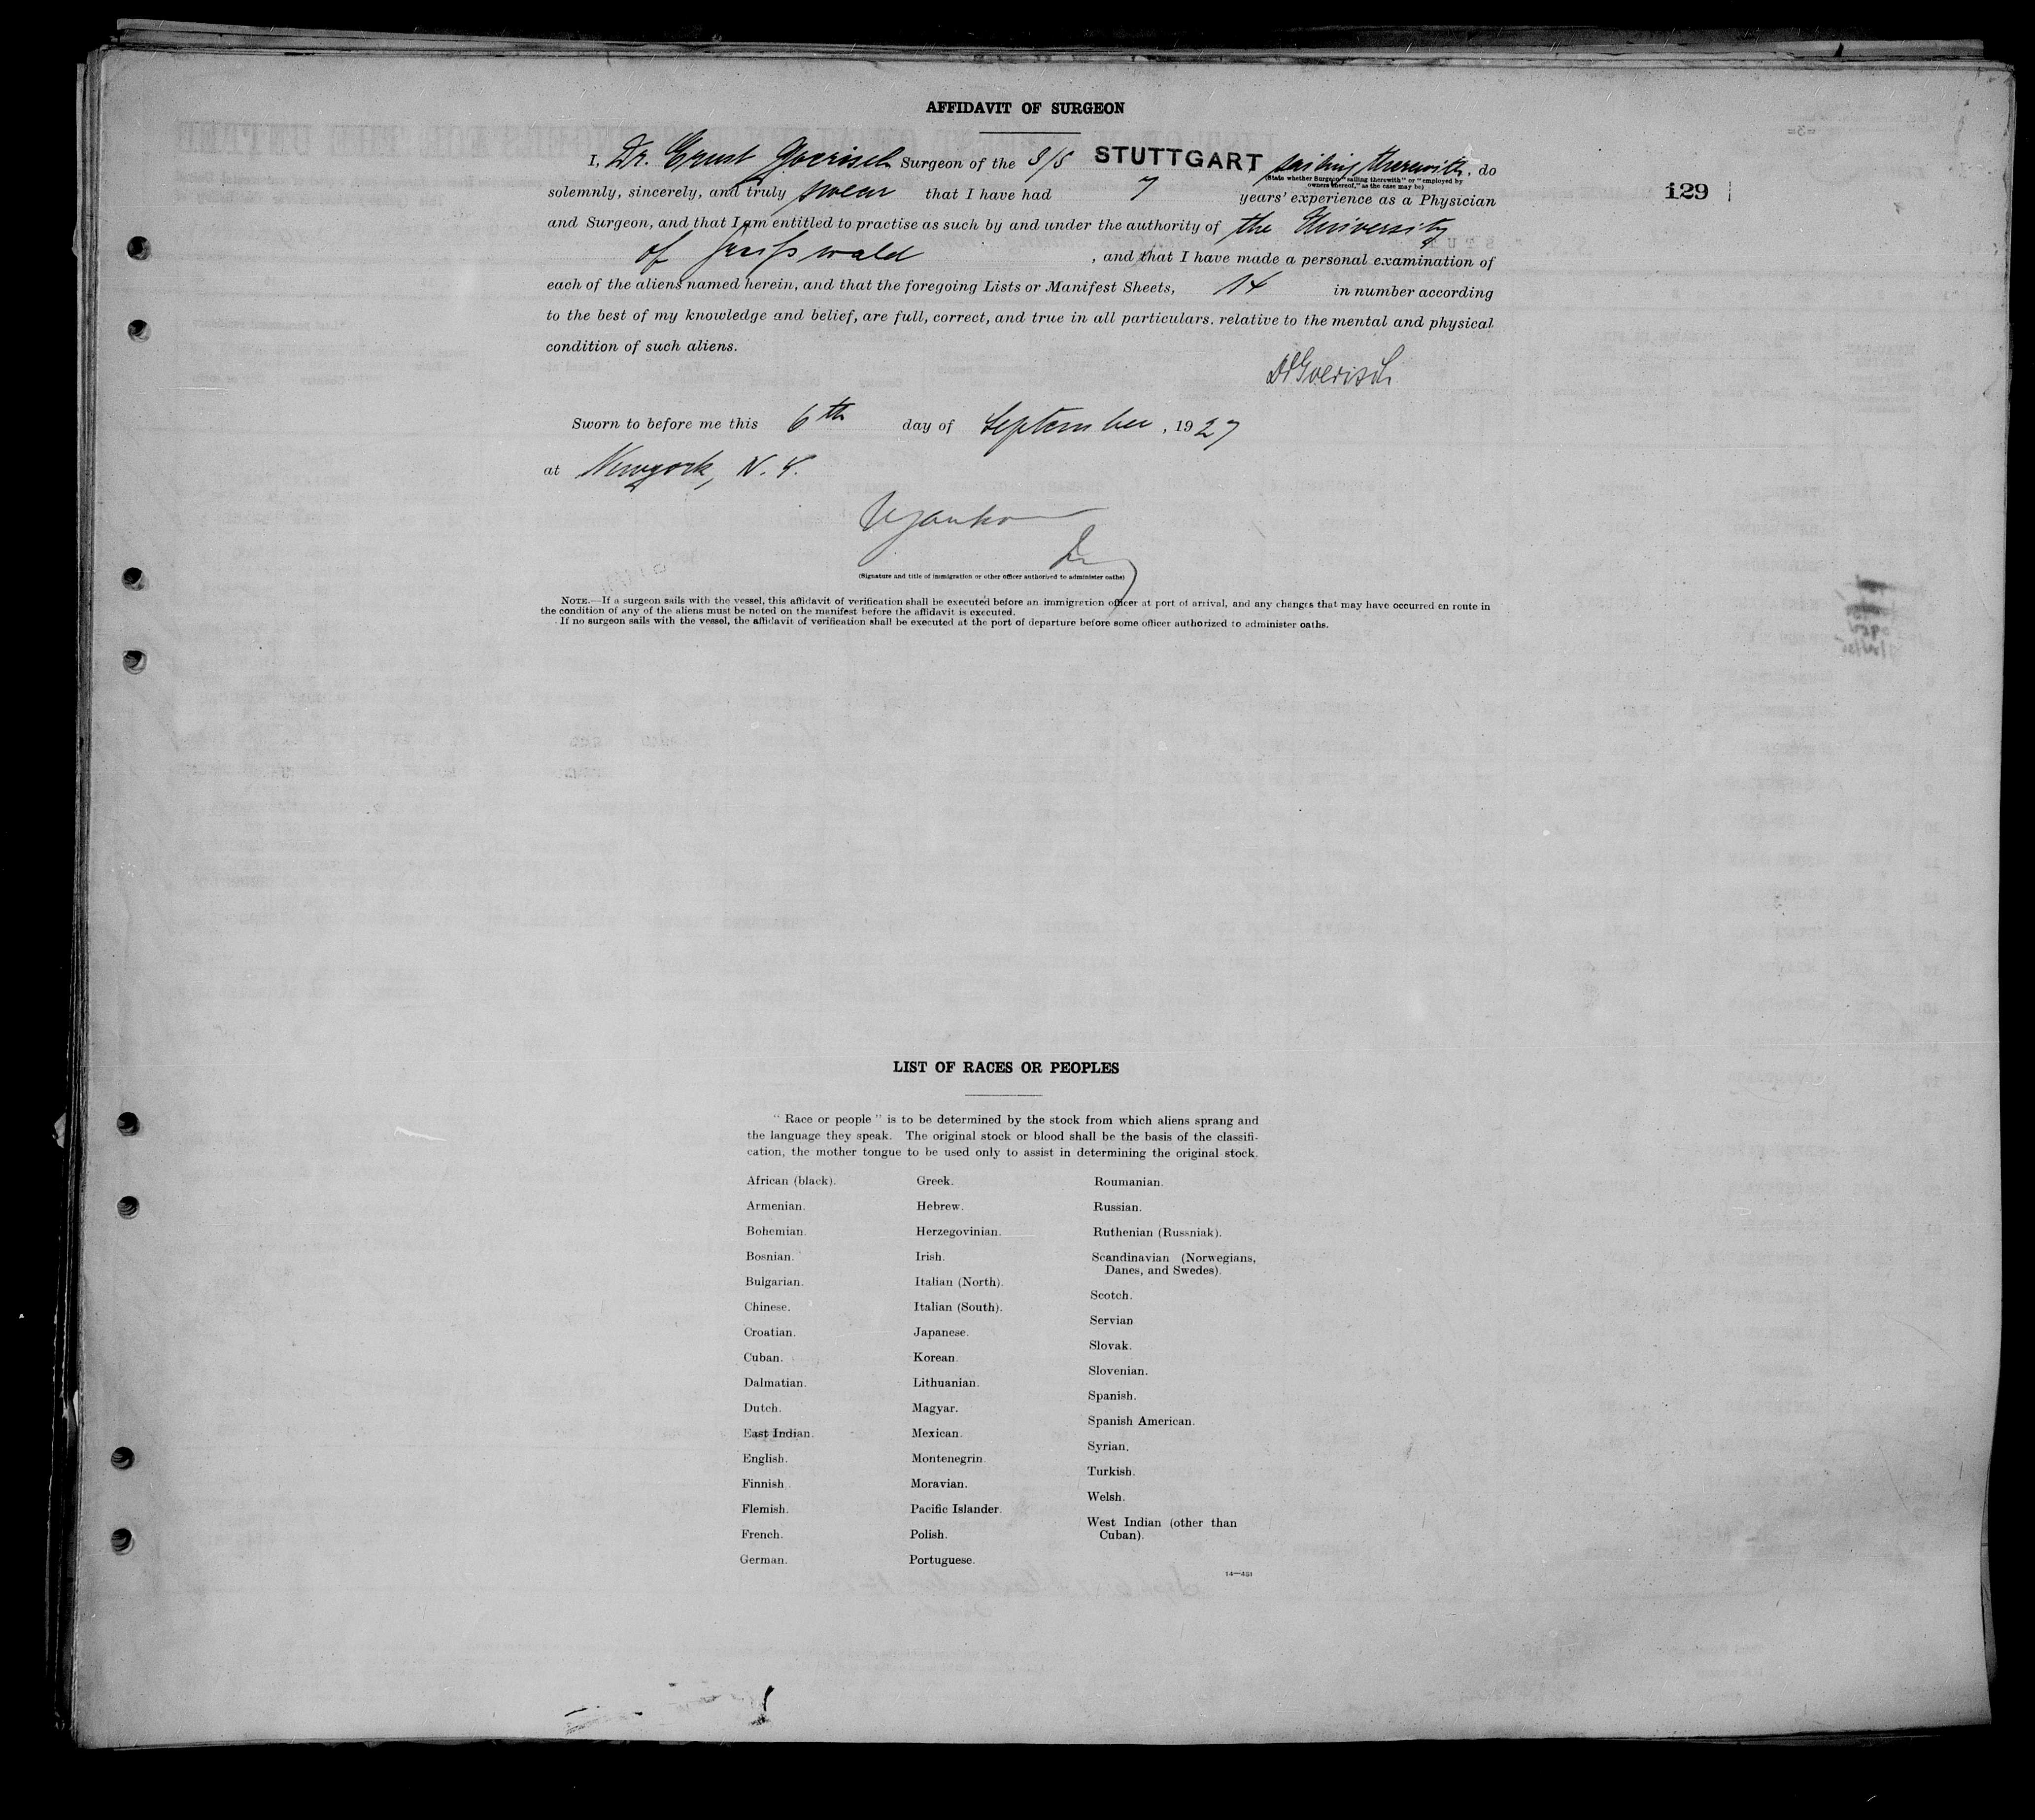 AFFIDAVIT OF SURGEON
129
I, Dr. Ernst Goerisch Surgeon of the S/S STUTTGART, sailing therewith, do
(State whether Surgeon "sailing therewith" or "employed by
owners thereof," as the case may be)
solemnly, sincerely, and truly swear that I have had 7 years' experience as a Physician
and Surgeon, and that I am entitled to practise as such by and under the authority of the University
of Greifswald, and that I have made a personal examination of
each of the aliens named herein, and that the foregoing Lists or Manifest Sheets, 14 in number according
to the best of my knowledge and belief, are full, correct, and true in all particulars. relative to the mental and physical
condition of such aliens.
Dr Goerisch
Sworn to before me this 6th day of September, 1927
at Newyork, N.Y.
(Signature and title of immigration or other officer authorized to administer oaths)
NOTE.—If a surgeon sails with the vessel, this affidavit of verification shall be executed before an immigration officer at port of arrival, and any changes that may have occurred en route in
the condition of any of the aliens must be noted on the manifest before the affidavit is executed.
If no surgeon sails with the vessel, the affidavit of verification shall be executed at the port of departure before some officer authorized to administer oaths.
LIST OF RACES OR PEOPLES
"Race or people" is to be determined by the stock from which aliens sprang and
the language they speak. The original stock or blood shall be the basis of the classifi-
cation, the mother tongue to be used only to assist in determining the original stock.
African (black).
Armenian.
Bohemian.
Bosnian.
Bulgarian.
Chinese.
Croatian.
Cuban.
Dalmatian.
Dutch.
East Indian.
English.
Finnish
Flemish.
French.
German.
Greek.
Hebrew.
Herzegovinian.
Irish.
Italian (North).
Italian (South).
Japanese.
Korean.
Lithuanian.
Magyar.
Mexican.
Montenegrin.
Moravian.
Pacific Islander.
Polish.
Portuguese.
Roumanian.
Russian.
Ruthenian (Russniak).
Scandinavian (Norwegians,
Danes, and Swedes).
Scotch.
Servian
Slovak.
Slovenian.
Spanish.
Spanish American.
Syrian.
Turkish.
Welsh.
West Indian (other than
Cuban).
14—431